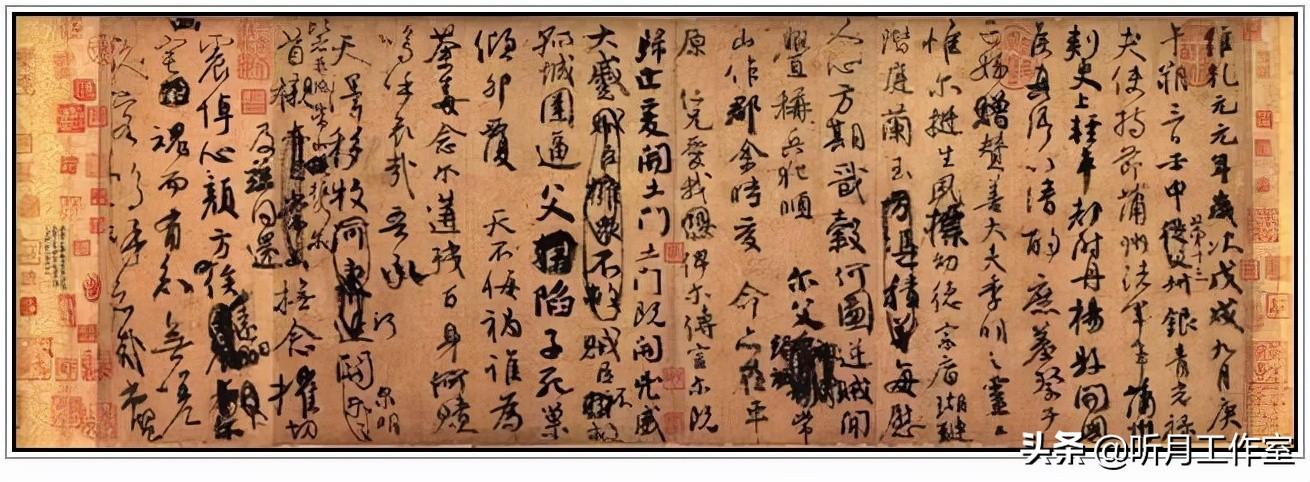 維乾元元年歲次戊戌九月庚
午朔三日壬申第十三叔銀青光祿
夫使持節蒲州諸軍事蒲州
刺史上輕車都尉丹楊縣開國
侯真卿以清酌庶羞祭于
亡姪贈贊善大夫季明之靈曰
惟爾挺生夙標幼德宗廟瑚璉
階庭蘭玉每慰
人心方期戩穀何圖逆賊間
釁稱兵犯順爾父竭誠常
山作郡余時受命亦在平
原仁兄愛我俾爾傳言爾既
歸止爰開土門土門既開兇威
大蹙賊臣擁眾不救賊臣不救
孤城圍逼父陷子死巢
傾卵覆天不悔禍誰為
荼毒念爾遘殘百身何贖
嗚乎哀哉吾承
天澤移牧河關泉明
比者再陷常山攜爾
首櫬及茲同還撫念摧切
震悼心顏方俟遠日
宅魂而有知無嗟
久客嗚呼哀哉尚饗
头条 @听月工作室